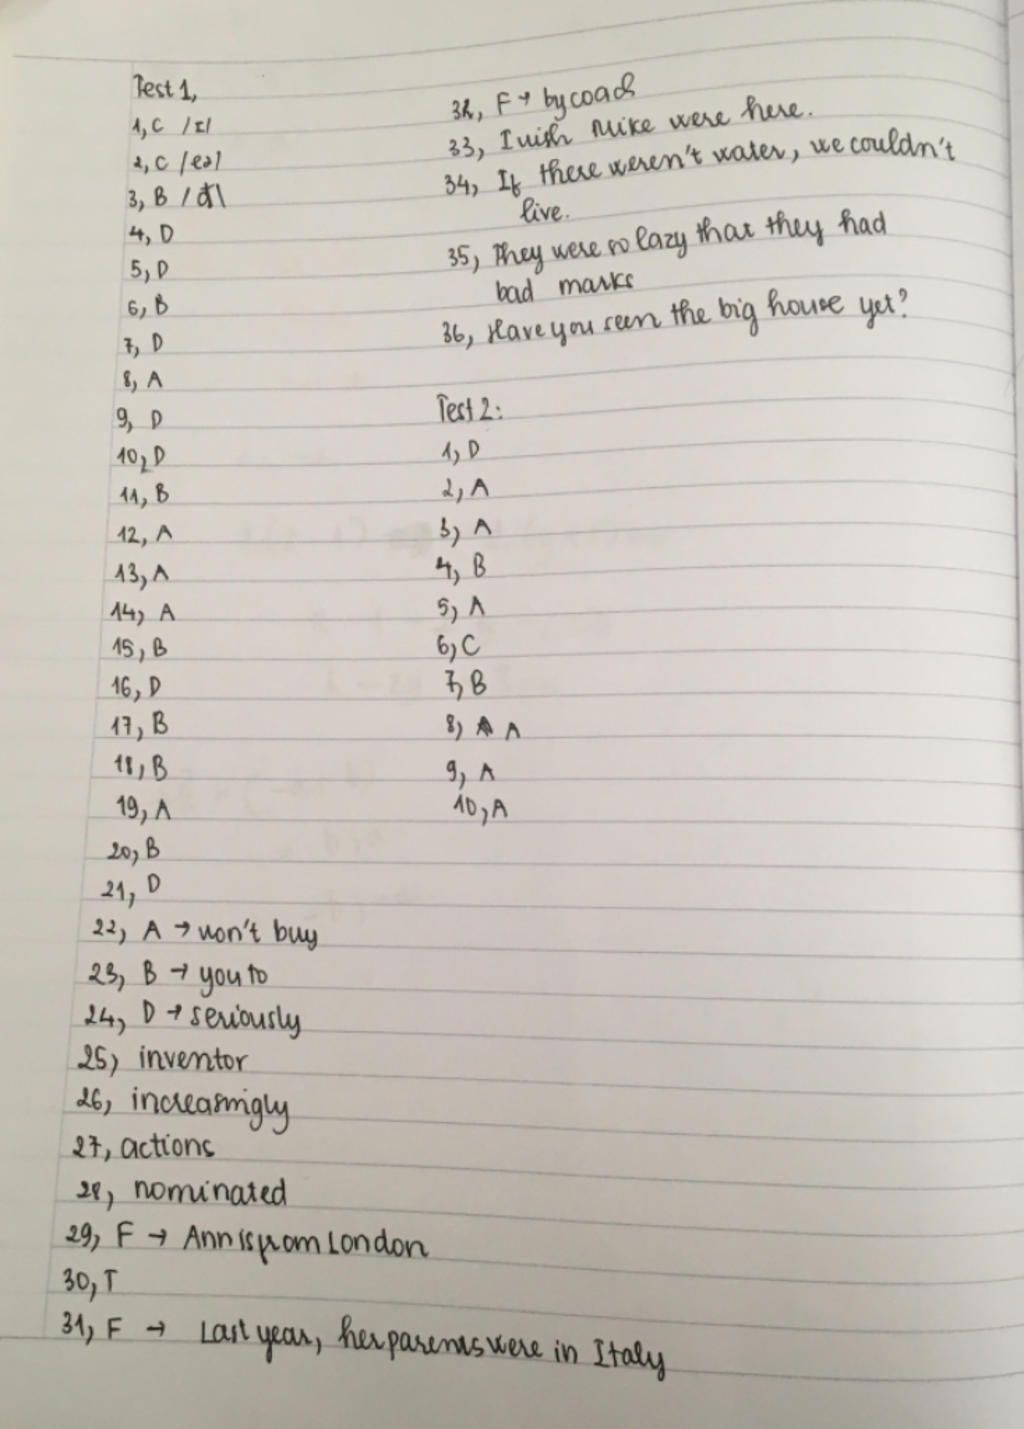 Test 1,
1, C /ɪ/
2, C /eə/
3, B /ð/
4, D
5, D
6, B
7, D
8, A
9, D
10, D
11, B
12, A
13, A
14, A
15, B
16, D
17, B
18, B
19, A
20, B
21, D
22, A → won't buy
23, B → you to
24, D → seriously
25, inventor
26, increasingly
27, actions
28, nominated
29, F → Ann is from London
30, T
31, F → Last year, her parents were in Italy
32, F → by coach
33, I wish Mike were here.
34, If there weren't water, we couldn't
live.
35, They were so lazy that they had
bad marks
36, Have you seen the big house yet?
Test 2:
1, D
2, A
3, A
4, B
5, A
6, C
7, B
8, A
9, A
10, A